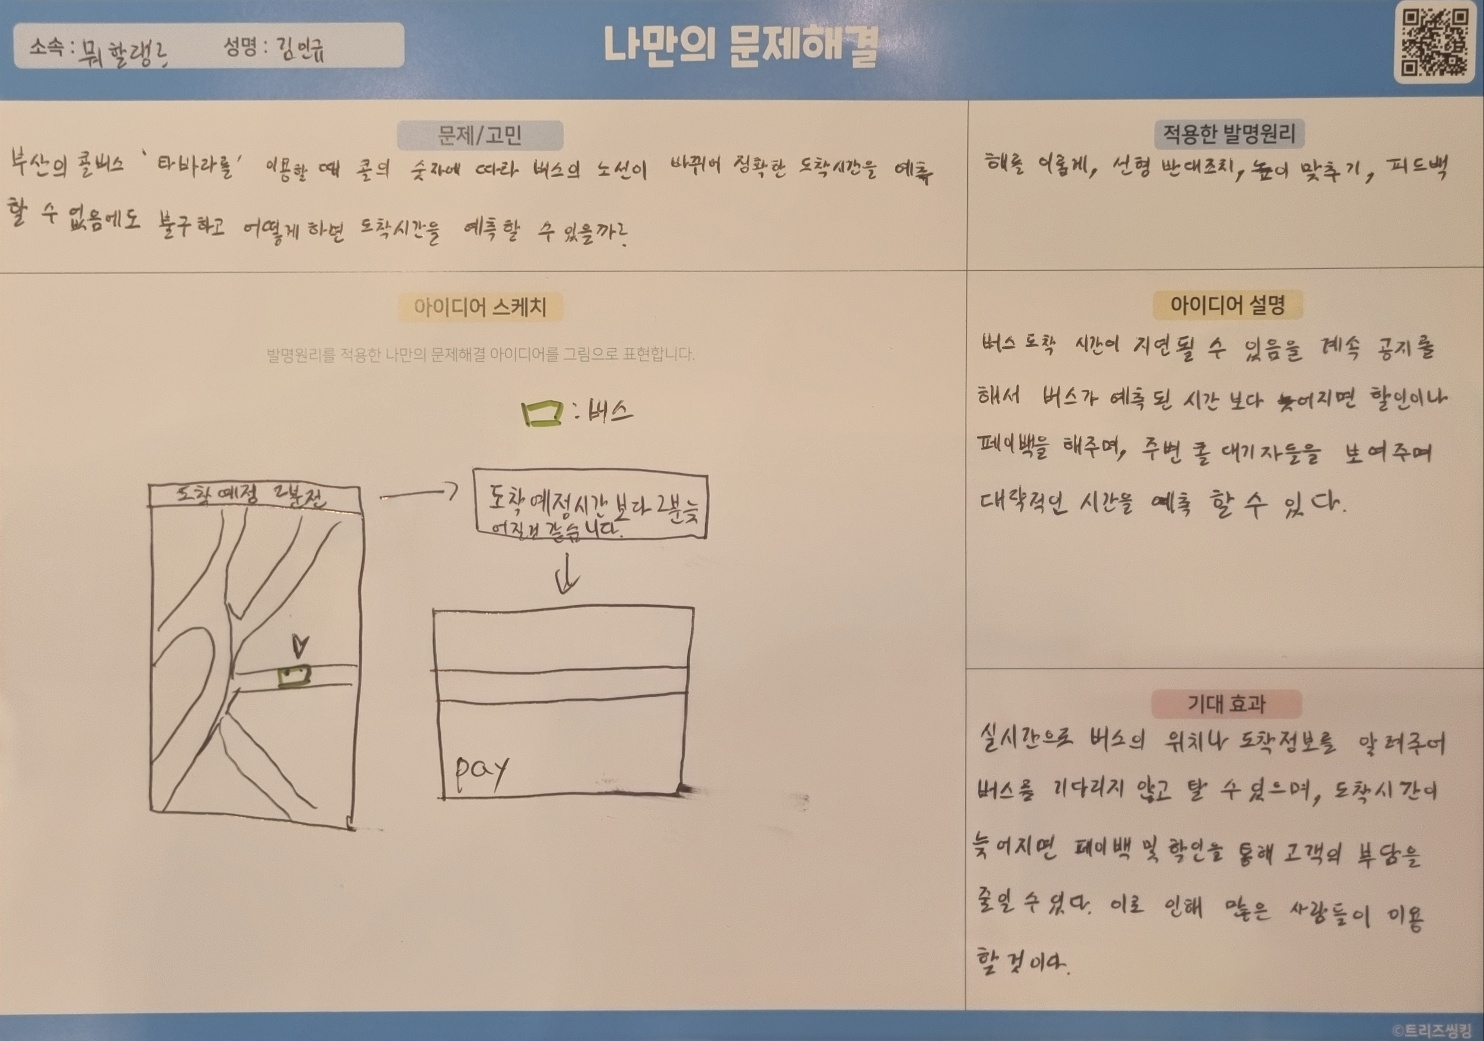 소속 : 뭐할랭?
성명 : 김인규
나만의 문제해결
문제/고민
부산의 콜버스 '타바라를' 이용할 때 콜의 숫자에 따라 버스의 노선이 바뀌어 정확한 도착시간을 예측
할 수 없음에도 불구하고 어떻게 하면 도착시간을 예측할 수 있을까?
적용한 발명원리
해를 이롭게, 선형 반대조치, 높이 맞추기, 피드백
아이디어 스케치
발명원리를 적용한 나만의 문제해결 아이디어를 그림으로 표현합니다.
: 버스
도착예정 2분전
도착예정시간 보다 2분늦
어질것 같습니다.
pay
아이디어 설명
버스 도착 시간이 지연될 수 있음을 계속 공지를
해서 버스가 예측된 시간 보다 늦어지면 할인이나
페이백을 해주며, 주변 콜 대기자들을 보여주며
대략적인 시간을 예측 할 수 있다.
기대 효과
실시간으로 버스의 위치나 도착정보를 알려주어
버스를 기다리지 않고 탈 수 있으며, 도착시간이
늦어지면 페이백 및 할인을 통해 고객의 부담을
줄일 수 있다. 이로 인해 많은 사람들이 이용
할 것이다.
©트리즈씽킹